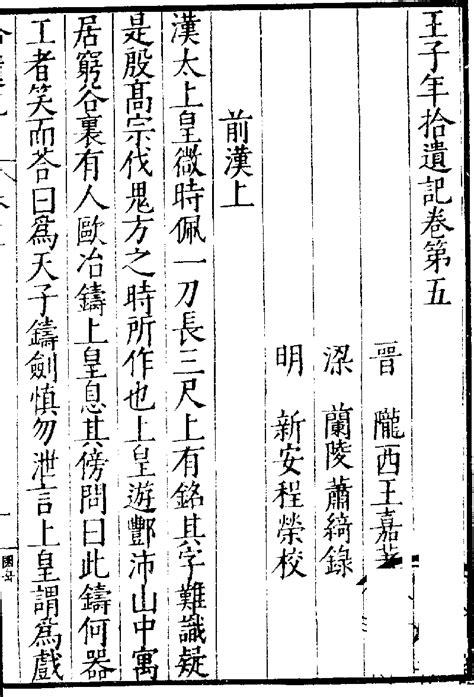 王子年拾遺記卷第五
晉 隴西王嘉著
梁 蘭陵蕭綺錄
明 新安程榮校
前漢上
漢太上皇微時佩一刀長三尺上有銘其字難識疑
是殷髙宗伐鬼方之時所作也上皇遊酆沛山中寓
居窮谷裏有人歐冶鑄上皇息其傍問曰此鑄何器
工者笑而荅曰爲天子鑄劍愼勿泄言上皇謂爲戲